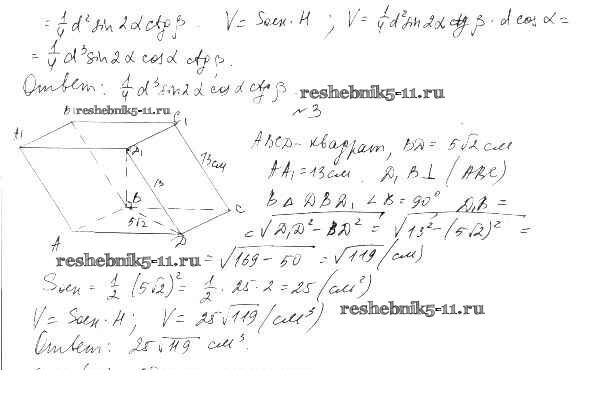 = 1/4 d² sin 2α ctg β. V = Sосн·H; V = 1/4 d² sin 2α ctg β · d cos α =
= 1/4 d³ sin 2α cos α ctg β.
Ответ: 1/4 d³ sin 2α cos α ctg β
reshebnik5-11.ru
№3
B1 reshebnik5-11.ru C1
A1 D1
13см
13
B C
5√2
A D
ABCD - квадрат, BD = 5√2 см
AA₁ = 13см. D₁B ⊥ (ABC)
В △ DBD₁ ∠B = 90° D₁B =
= √D₁D² - BD² = √13² - (5√2)² =
reshebnik5-11.ru = √169 - 50 = √119 (см)
Sосн = 1/2 (5√2)² = 1/2 · 25 · 2 = 25 (см²)
V = Sосн·H; V = 25√119 (см³) reshebnik5-11.ru
Ответ: 25√119 см³.